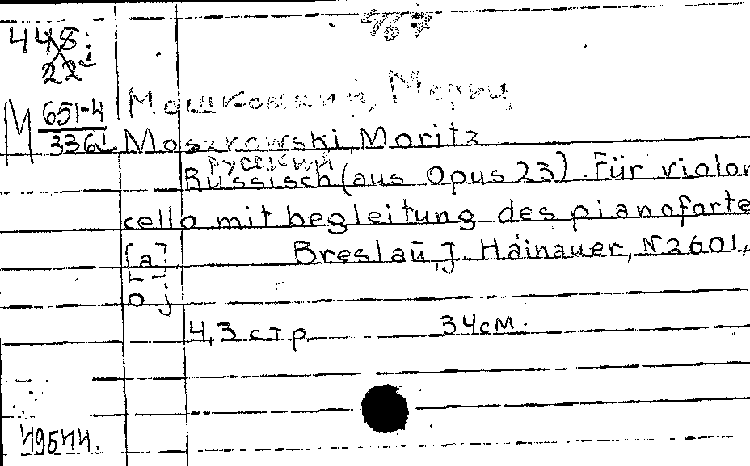 448:
22
Мошковский, Мориц
М 651-4
336
Moszkowski, Moritz
русский
Russisch (aus Opus 23). Für violon
cello mit begleitung des pianoforte
[a] Breslau, J. Hainauer, N 2601,
4,3 стр 34 см.
49544.